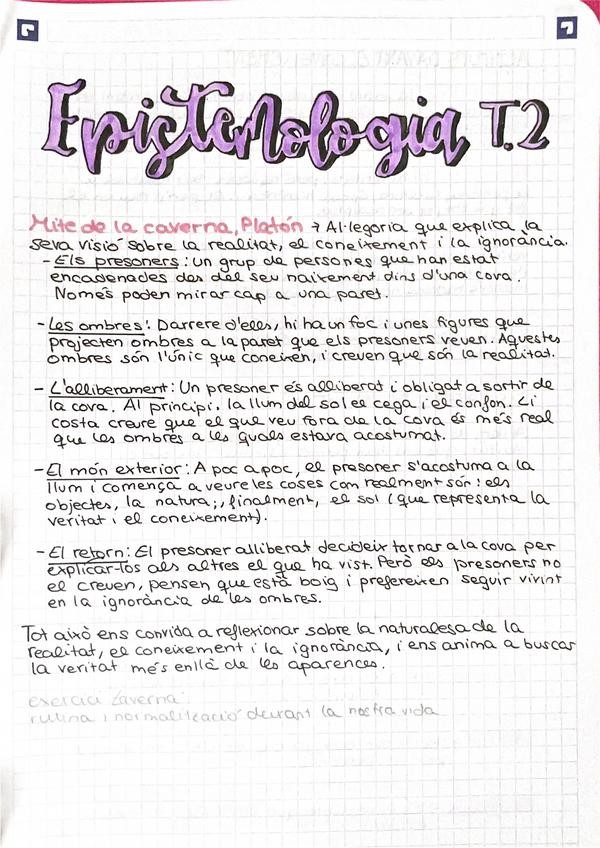 Epistemologia T.2
Mite de la caverna, Platón → Al·legoria que explica la
seva visió sobre la realitat, el coneixement i la ignorància.
- Els presoners: un grup de persones que han estat
encadenades des del seu naixement dins d'una cova.
Només poden mirar cap a una paret.
- Les ombres: Darrere d'eles, hi ha un foc i unes figures que
projecten ombres a la paret que els presoners veuen. Aquestes
ombres són l'únic que coneixen, i creuen que són la realitat.
- L'alliberament: Un presoner és alliberat i obligat a sortir de
la cova. Al principi, la llum del sol el cega i el confon. Li
costa creure que el que veu fora de la cova és més real
que les ombres a les quals estava acostumat.
- El món exterior: A poc a poc, el presoner s'acostuma a la
llum i comença a veure les coses com realment són: els
objectes, la natura i, finalment, el sol (que representa la
veritat i el coneixement).
- El retorn: El presoner alliberat decideix tornar a la cova per
explicar-los als altres el que ha vist. Però els presoners no
el creuen, pensen que està boig i prefereixen seguir vivint
en la ignorància de les ombres.
Tot això ens convida a reflexionar sobre la naturalesa de la
realitat, el coneixement i la ignorància, i ens anima a buscar
la veritat més enllà de les aparences.
exercici caverna:
rutina i normalització durant la nostra vida